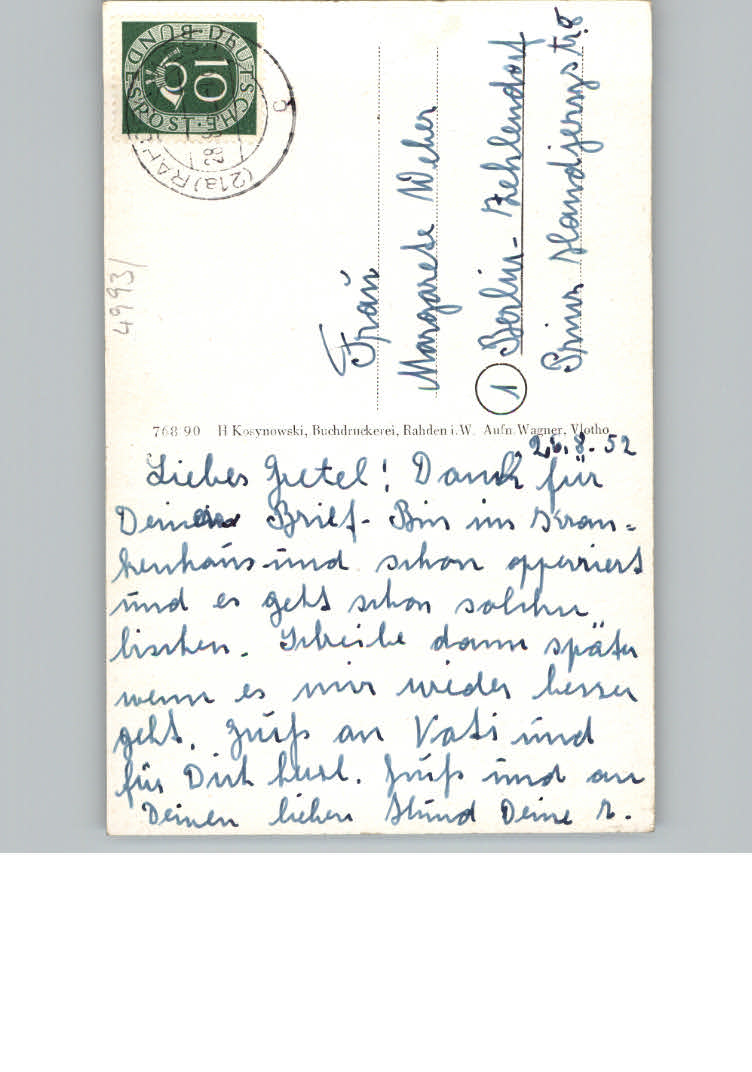 DEUTSCHE BUNDESPOST
10
(21a) RAH
28
g
4993/
Frau
Margarete Weber
1 Berlin-Zehlendorf
Prinz Handjerystr. 8
768 90 H Kosynowski, Buchdruckerei, Rahden i.W. Aufn. Wagner, Vlotho
26.8.52
Liebes Gretel! Dank für
Deinen Brief- Bin im Kran=
kenhaus und schon opperiert
und es geht schon solchen
bischen. Schreibe dann später
wenn es mir wieder besser
geht. Gruß an Vati und
für Dich herzl. Gruß und an
Deinen lieben Hund Deine R.